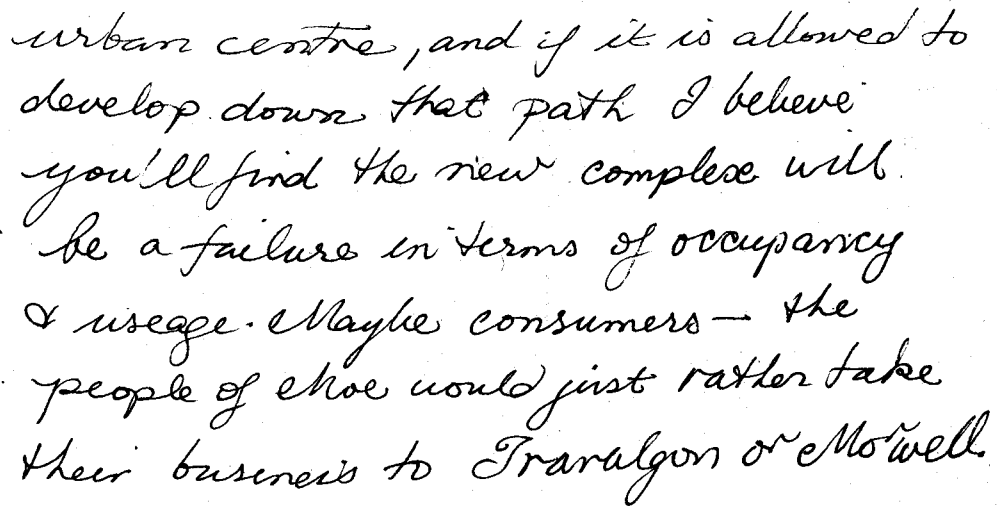 urban centre, and if it is allowed to
develop down that path I believe
you'll find the new complex will
be a failure in terms of occupancy
& useage. Maybe consumers — the
people of Moe would just rather take
their business to Traralgon or Morwell.